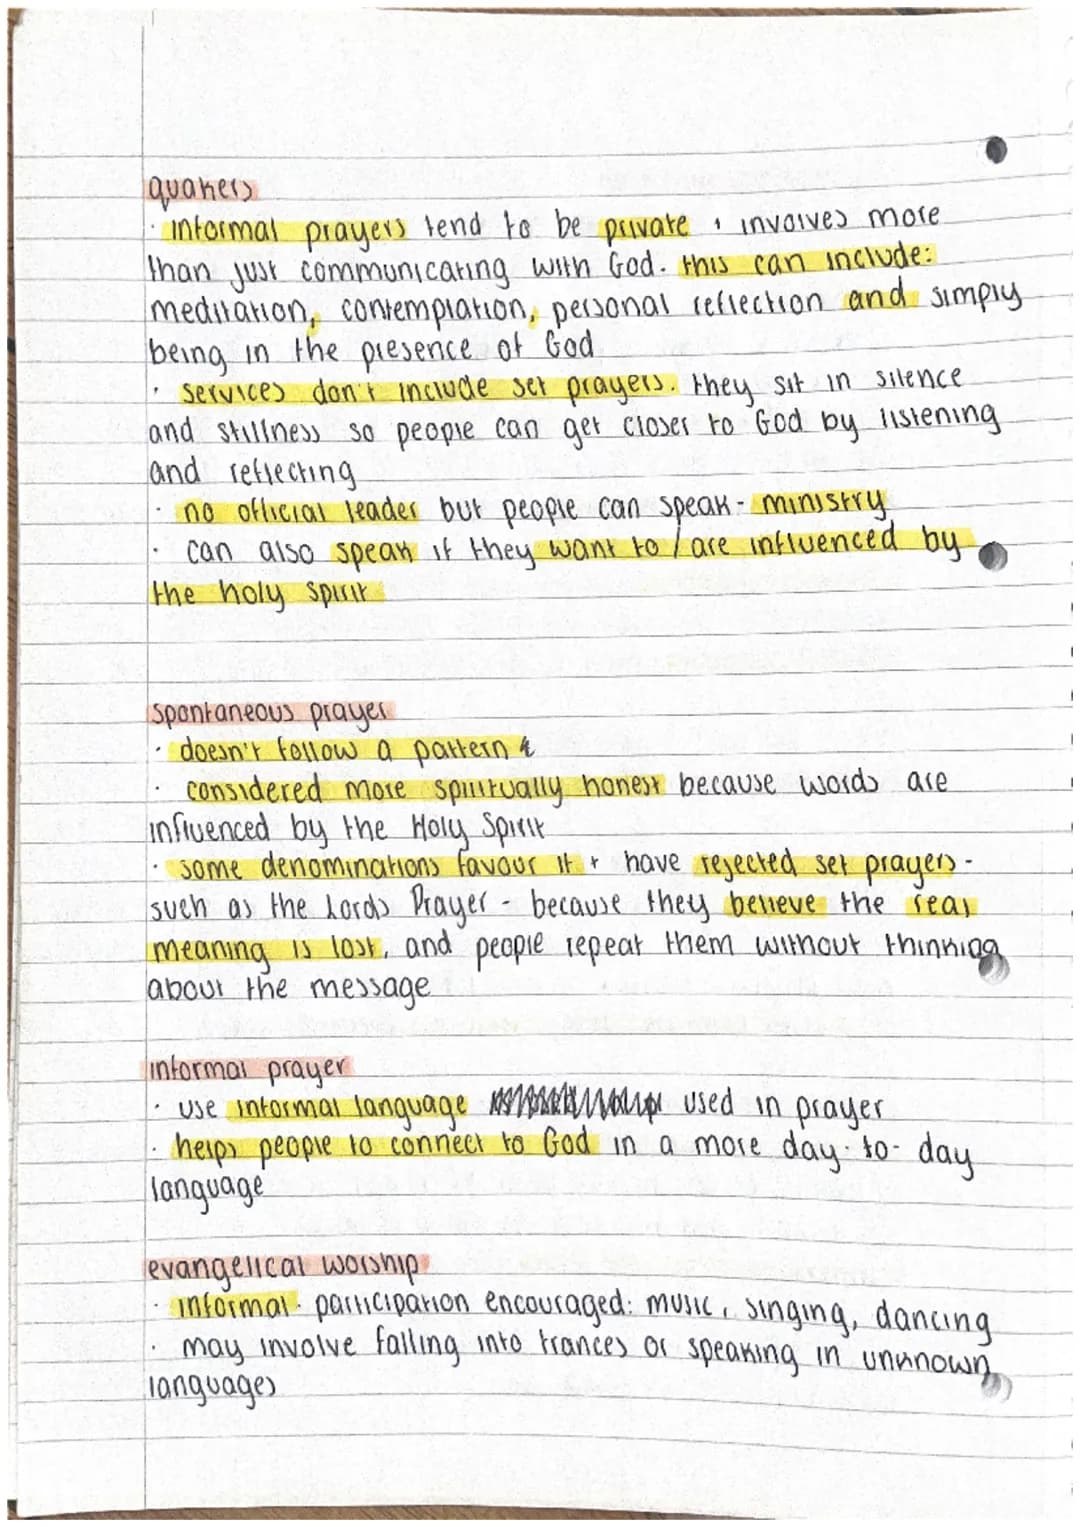 quakers
· informal prayers tend to be private + involves more
than just communicating with God. this can include:
meditation, contemplation, personal reflection and simply
being in the presence of God
· services don't include set prayers. they sit in silence
and stillness so people can get closer to God by listening
and reflecting
· no official leader but people can speak - ministry
· can also speak if they want to / are influenced by
the holy spirit
spontaneous prayer
· doesn't follow a pattern
· considered more spiritually honest because words are
influenced by the Holy Spirit
· some denominations favour it + have rejected set prayers -
such as the Lords Prayer - because they believe the real
meaning is lost, and people repeat them without thinking
about the message
informal prayer
· use informal language used in prayer
· helps people to connect to God in a more day-to-day
language
evangelical worship
· informal · participation encouraged: music, singing, dancing
· may involve falling into trances or speaking in unknown
languages